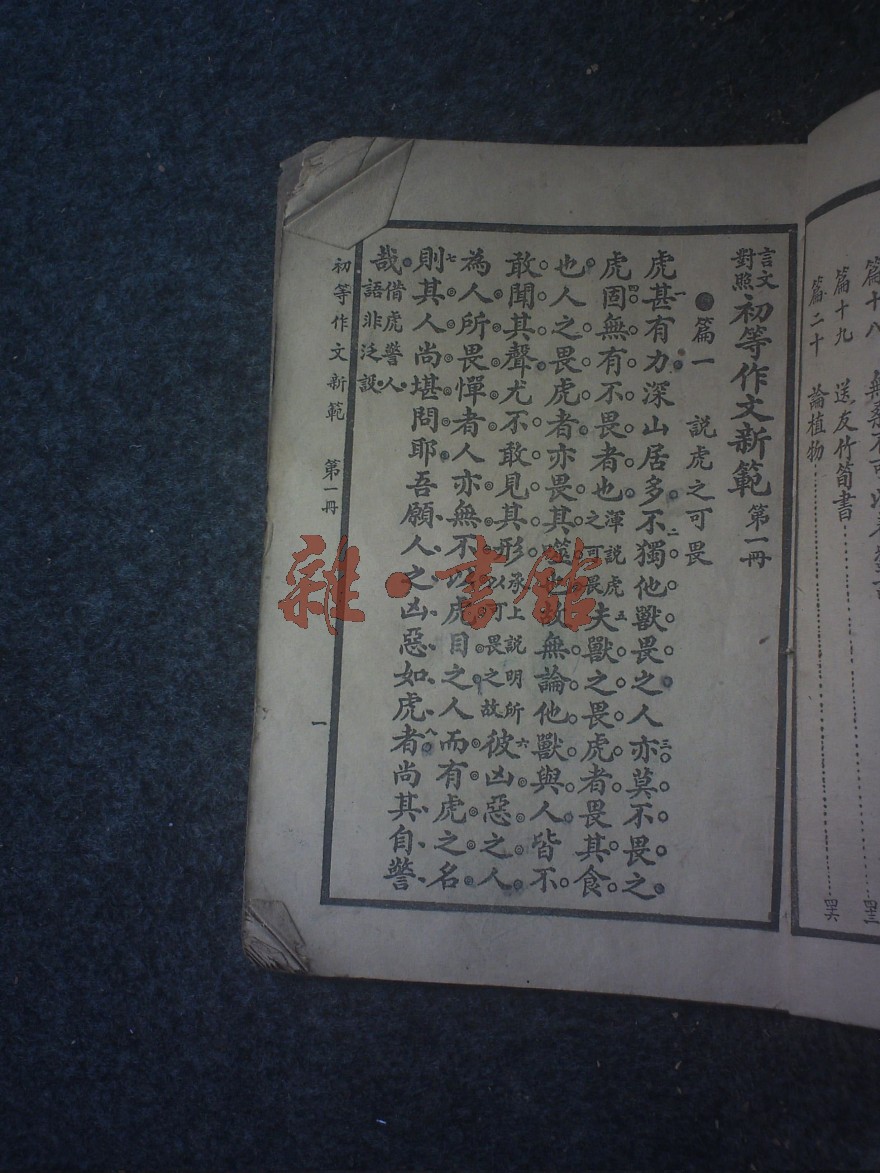 篇十九　送友竹筍書 四三
篇二十　論植物 四六
言文對照初等作文新範第一冊
篇一　說虎之可畏
虎甚有力深山居多不獨他獸畏之人亦莫不畏之
虎固無有不畏者也渾說虎之可畏夫獸之畏虎者畏其食
也人之畏虎者亦畏其噬也故無論他獸與人皆不
敢聞其聲尤不敢見其形承上說明所以可畏之故彼凶惡之人
為人所畏憚者人亦無不以虎目之人而有虎之名
則其人尚堪問耶吾願人之凶惡如虎者尚其自警
哉借虎警人語非泛設
初等作文新範　第一冊
一
雜·書館